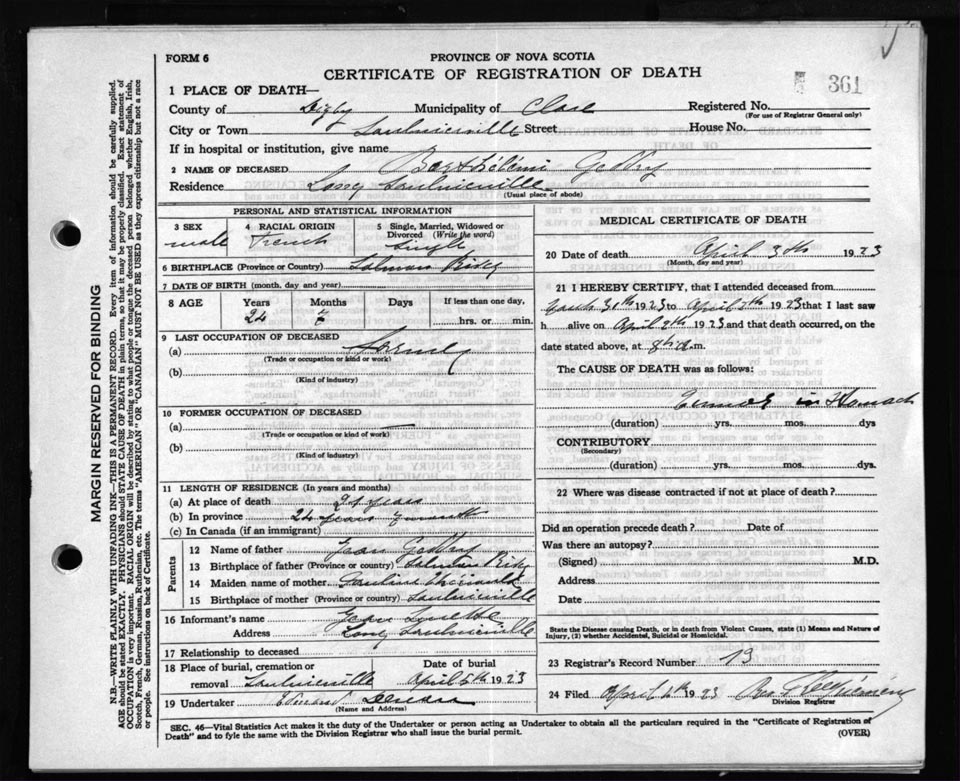 FORM 6
PROVINCE OF NOVA SCOTIA
CERTIFICATE OF REGISTRATION OF DEATH
361
1 PLACE OF DEATH—
County of Digby Municipality of Clare Registered No.
(For use of Registrar General only)
City or Town Saulnierville Street House No.
If in hospital or institution, give name
2 NAME OF DECEASED Barthélémi
Residence Long Saulnierville
(Usual place of abode)
PERSONAL AND STATISTICAL INFORMATION
3 SEX male
4 RACIAL ORIGIN French
5 Single, Married, Widowed or Divorced (Write the word) Single
6 BIRTHPLACE (Province or Country) Salmon River
7 DATE OF BIRTH (month, day, and year)
8 AGE Years Months Days If less than one day,
24 7 hrs. or min.
9 LAST OCCUPATION OF DECEASED
(a)
(Trade or occupation or kind or work)
(b)
(Kind of industry)
10 FORMER OCCUPATION OF DECEASED
(a) —
(Trade or occupation or kind or work)
(b)
(Kind of industry)
11 LENGTH OF RESIDENCE (In years and months)
(a) At place of death years
(b) In province 24 years 7 month
(c) In Canada (if an immigrant)
Parents
12 Name of father Jean
13 Birthplace of father (Province or country) Salmon River
14 Maiden name of mother
15 Birthplace of mother (Province or country) Saulnierville
16 Informant's name Jean
Address Long Saulnierville
17 Relationship to deceased
18 Place of burial, cremation or removal Saulnierville
Date of burial April 5th 1923
19 Undertaker
(Name and Address)
MEDICAL CERTIFICATE OF DEATH
20 Date of death April 3th 1923
(Month, day and year)
21 I HEREBY CERTIFY, that I attended deceased from
March 30th 1923 to April 1923 that I last saw
h alive on April 2th 1923 and that death occurred, on
date stated above, at 8 m.
The CAUSE OF DEATH was as follows:
in stomach
(duration) yrs. mos. dys
CONTRIBUTORY
(Secondary)
(duration) yrs. mos. dys.
22 Where was disease contracted if not at place of death?
Did an operation precede death? Date of
Was there an autopsy?
(Signed) M.D.
Address
Date
State the Disease causing Death, or in death from Violent Causes, state (1) Means and Nature of Injury, (2) whether Accidental, Suicidal or Homicidal.
23 Registrar's Record Number 13
24 Filed April 6th 1923
Division Registrar
SEC. 46—Vital Statistics Act makes it the duty of the Undertaker or person acting as Undertaker to obtain all the particulars required in the "Certificate of Registration of
Death" and to fyle the same with the Division Registrar who shall issue the burial permit. (OVER)
MARGIN RESERVED FOR BINDING
N.B.—WRITE PLAINLY WITH UNFADING INK—THIS IS A PERMANENT RECORD. Every item of information should be carefully supplied.
AGE should be stated EXACTLY. PHYSICIANS should STATE CAUSE OF DEATH in plain terms, so that it may be properly classified. Exact statement of
OCCUPATION is very important. RACIAL ORIGIN will be described by stating to what people or tongue the deceased person belonged whether English, Irish,
Scotch, French, German, Russian, Ruthenian, etc. The terms "AMERICAN" or "CANADIAN" MUST NOT BE USED as they express citizenship but not a race
or people. See instructions on back of Certificate.